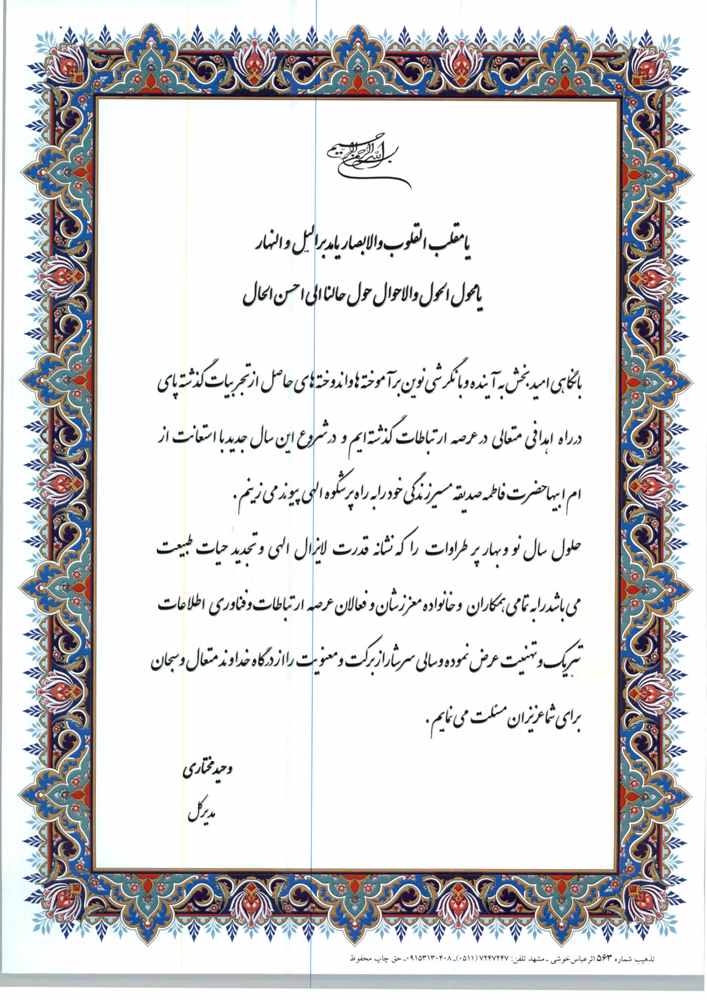 بسم الله الرحمن الرحیم
یا مقلب القلوب والابصار یا مدبر الیل و النهار
یا محول الحول والاحوال حول حالنا الی احسن الحال
با نگاهی امید بخش به آینده و با نگرشی نوین بر آموخته ها و اندوخته های حاصل از تجربیات گذشته پای
در راه اهدافی متعالی در عرصه ارتباطات گذشته ایم و در شروع این سال جدید با استعانت از
ام ابیها حضرت فاطمه صدیقه مسیر زندگی خود را به راه پرشکوه الهی پیوند می زینم .
حلول سال نو و بهار پر طراوات را که نشانه قدرت لایزال الهی و تجدید حیات طبیعت
می باشد را به تمامی همکاران و خانواده معززشان و فعالان عرصه ارتباطات و فناوری اطلاعات
تبریک و تهنیت عرض نموده و سالی سرشار از برکت و معنویت را از درگاه خداوند متعال و سبحان
برای شما عزیزان مسئلت می نمایم .
وحید مختاری
مدیر کل
تذهیب شماره ۵۶۳ اثر عباس خوشی ـ مشهد تلفن: ۷۲۴۷۲۴۷ (۰۵۱۱)ـ ۰۹۱۵۳۱۳۰۴۰۸ـ حق چاپ محفوظ